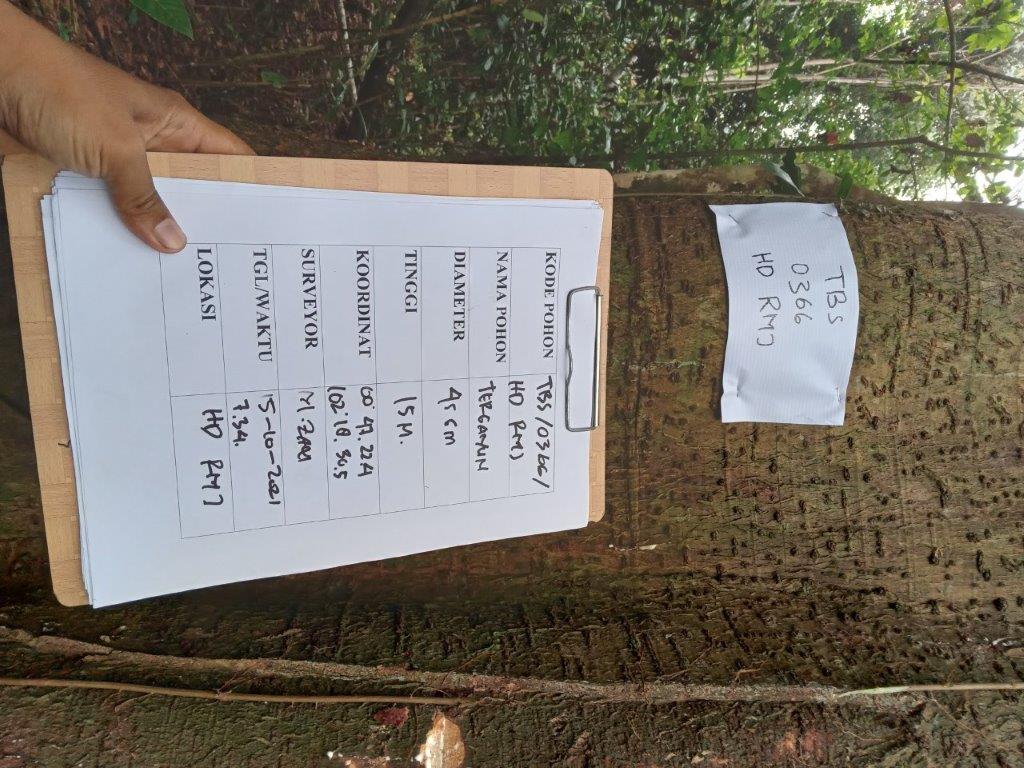 TBS
0366
HD RMJ
KODE POHON TBS/0366/
HD RMJ
NAMA POHON
DIAMETER 45 cm
TINGGI 15 M.
KOORDINAT 00° 47. 224
102° 18. 305
SURVEYOR
TGL/WAKTU 15-10-2021
7.34.
LOKASI HD RMJ